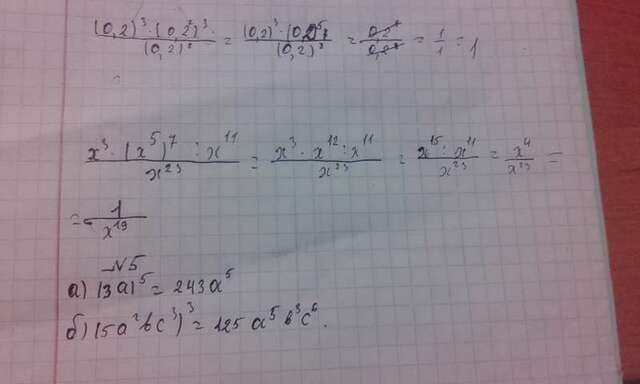 ((0,2)³ · (0,2²)³)/(0,2)⁸ = ((0,2)³ · (0,2)⁵)/(0,2)⁸ = 0,2⁸/0,2⁸ = 1/1 = 1
(x³ · (x⁵)⁷ : x¹¹)/x²³ = (x³ · x¹² : x¹¹)/x²³ = (x¹⁵ : x¹¹)/x²³ = x⁴/x²³ =
= 1/x¹⁹
№5
а) (3a)⁵ = 243a⁵
б) (5a²bc³)³ = 125a⁵b³c⁶.